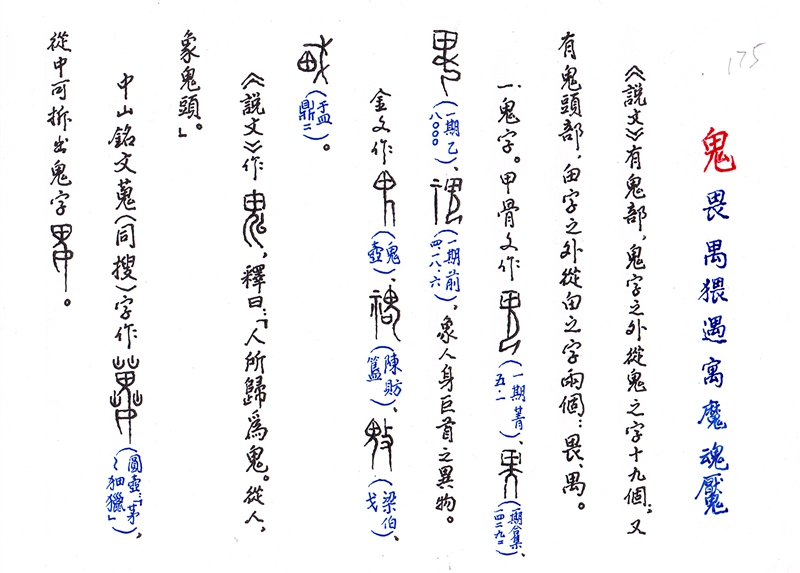 175
鬼 畏禺猥遇寓魔魂魘
《說文》有鬼部，鬼字之外從鬼之字十九個；又
有鬼頭部，甶字之外從甶之字兩個：畏、禺。
一、鬼字。甲骨文作（一期菁五.一）、（一期合集一四二九二）、
（一期乙八〇〇〇）、（一期前四.一八.六），象人身巨首之異物。
金文作（鬼壺）、（陳肪簋）、（梁伯戈）、
（盂鼎二）。
《說文》作，釋曰：「人所歸為鬼。從人，
象鬼頭。」
中山銘文蒐（同搜）字作（圓壺：「茅蒐狃獵」），
從中可拆出鬼字。